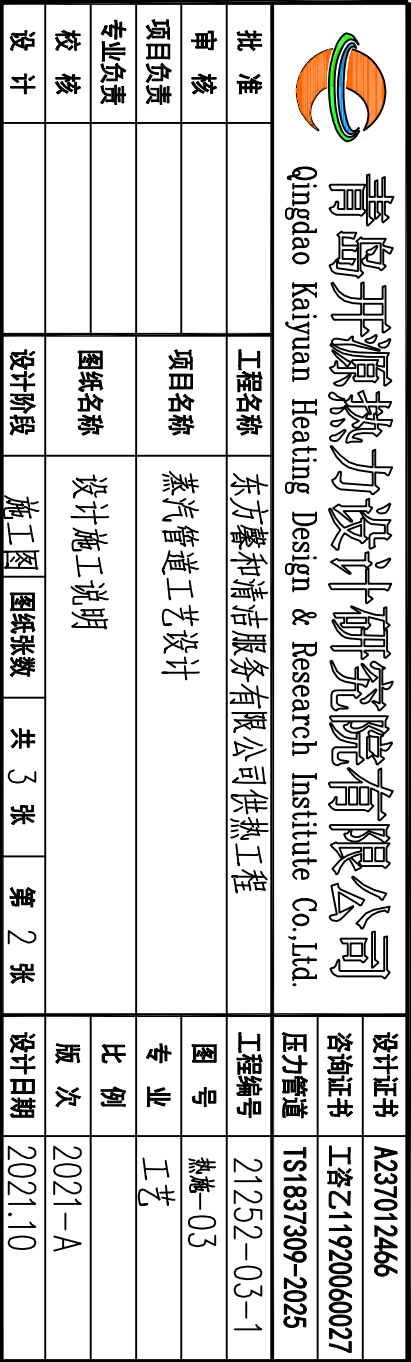 青岛开源热力设计研究院有限公司
Qingdao Kaiyuan Heating Design & Research Institute Co.,Ltd.
设计证书 A237012466
咨询证书 工咨乙11920060027
压力管道 TS1837309-2025
批准 工程名称 东方馨和清洁服务有限公司供热工程 工程编号 21252-03-1
审核 图号 热施-03
项目负责 项目名称 蒸汽管道工艺设计 专业 工艺
专业负责 比例
校核 图纸名称 设计施工说明 版次 2021-A
设计 设计阶段 施工图 图纸张数 共 3 张 第 2 张 设计日期 2021.10